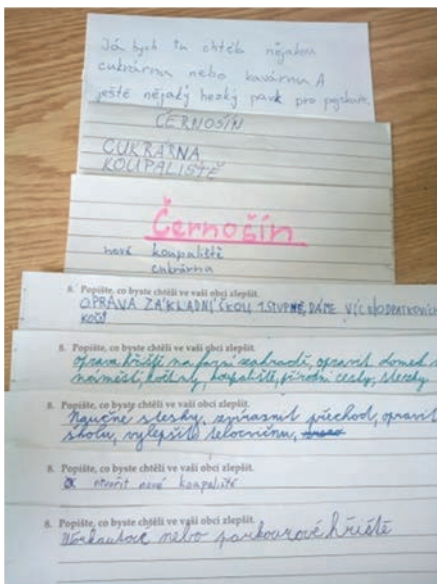 Já bych tu chtěla nějakou
cukrárnu nebo kavárnu A
ještě nějaký hezký park pro pejskaře.
ČERNOŠÍN
CUKRARNA
KOUPALIŠTĚ
Černošín
nové koupaliště
cukrárna
8. Popište, co byste chtěli ve vaší obci zlepšit.
OPRAVA ZÁKLADNÍ ŠKOLY 1. STUPNĚ, DÁME VÍC ODPADKOVÝCH
KOŠŮ
8. Popište, co byste chtěli ve vaší obci zlepšit.
oprava hřiště na farní zahradě, opravit domek
koupaliště, přírodní cesty, stezky
8. Popište, co byste chtěli ve vaší obci zlepšit.
Naučné stezky, zvýraznit přechod, opravit
školu, vylepšit tělocvičnu,
8. Popište, co byste chtěli ve vaší obci zlepšit.
otevřít nové koupaliště
8. Popište, co byste chtěli ve vaší obci zlepšit.
Workoutové nebo parkourové hřiště